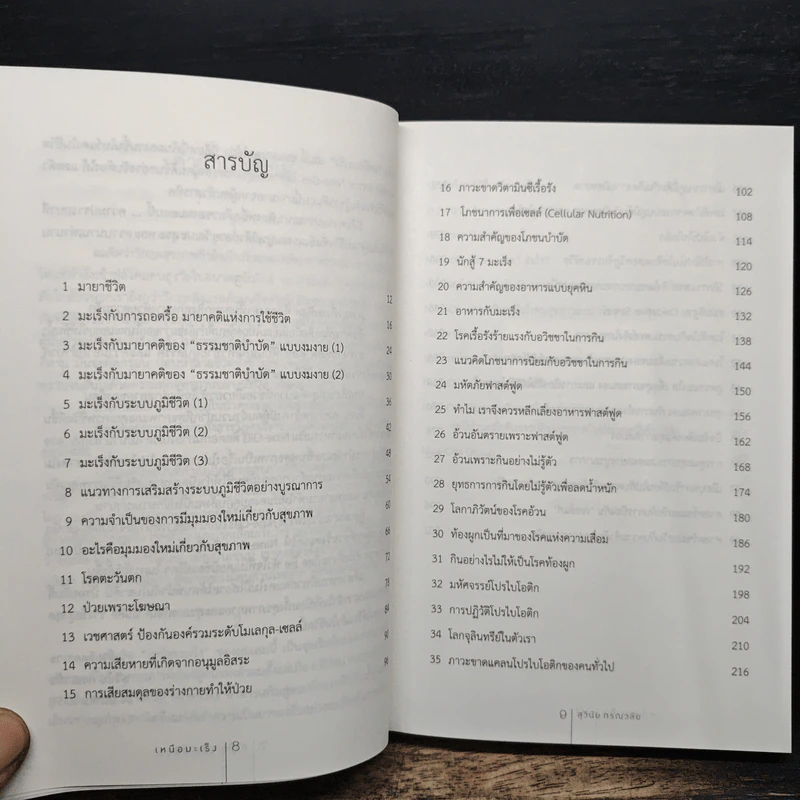 สารบัญ
1 มายาชีวิต 12
2 มะเร็งกับการถอดรื้อ มายาคติแห่งการใช้ชีวิต 16
3 มะเร็งกับมายาคติของ “ธรรมชาติบำบัด” แบบงมงาย (1) 24
4 มะเร็งกับมายาคติของ “ธรรมชาติบำบัด” แบบงมงาย (2) 30
5 มะเร็งกับระบบภูมิชีวิต (1) 36
6 มะเร็งกับระบบภูมิชีวิต (2) 42
7 มะเร็งกับระบบภูมิชีวิต (3) 48
8 แนวทางการเสริมสร้างระบบภูมิชีวิตอย่างบูรณาการ 54
9 ความจำเป็นของการมีมุมมองใหม่เกี่ยวกับสุขภาพ 60
10 อะไรคือมุมมองใหม่เกี่ยวกับสุขภาพ 66
11 โรคตะวันตก 72
12 ป่วยเพราะโฆษณา 78
13 เวชศาสตร์ ป้องกันองค์รวมระดับโมเลกุล-เซลล์ 84
14 ความเสียหายที่เกิดจากอนุมูลอิสระ 90
15 การเสียสมดุลของร่างกายทำให้ป่วย 96
เหนือมะเร็ง 8
16 ภาวะขาดวิตามินซีเรื้อรัง 102
17 โภชนาการเพื่อเซลล์ (Cellular Nutrition) 108
18 ความสำคัญของโภชนบำบัด 114
19 นักสู้ 7 มะเร็ง 120
20 ความสำคัญของอาหารแบบยุคหิน 126
21 อาหารกับมะเร็ง 132
22 โรคเรื้อรังร้ายแรงกับอวิชชาในการกิน 138
23 แนวคิดโภชนาการนิยมกับอวิชชาในการกิน 144
24 มหัตภัยฟาสต์ฟูด 150
25 ทำไม เราจึงควรหลีกเลี่ยงอาหารฟาสต์ฟูด 156
26 อ้วนอันตรายเพราะฟาสต์ฟูด 162
27 อ้วนเพราะกินอย่างไม่รู้ตัว 168
28 ยุทธการการกินโดยไม่รู้ตัวเพื่อลดน้ำหนัก 174
29 โลกาภิวัตน์ของโรคอ้วน 180
30 ท้องผูกเป็นที่มาของโรคแห่งความเสื่อม 186
31 กินอย่างไรไม่ให้เป็นโรคท้องผูก 192
32 มหัศจรรย์โปรไบโอติก 198
33 การปฏิวัติโปรไบโอติก 204
34 โลกจุลินทรีย์ในตัวเรา 210
35 ภาวะขาดแคลนโปรไบโอติกของคนทั่วไป 216
9 สุวินัย ภรณวลัย